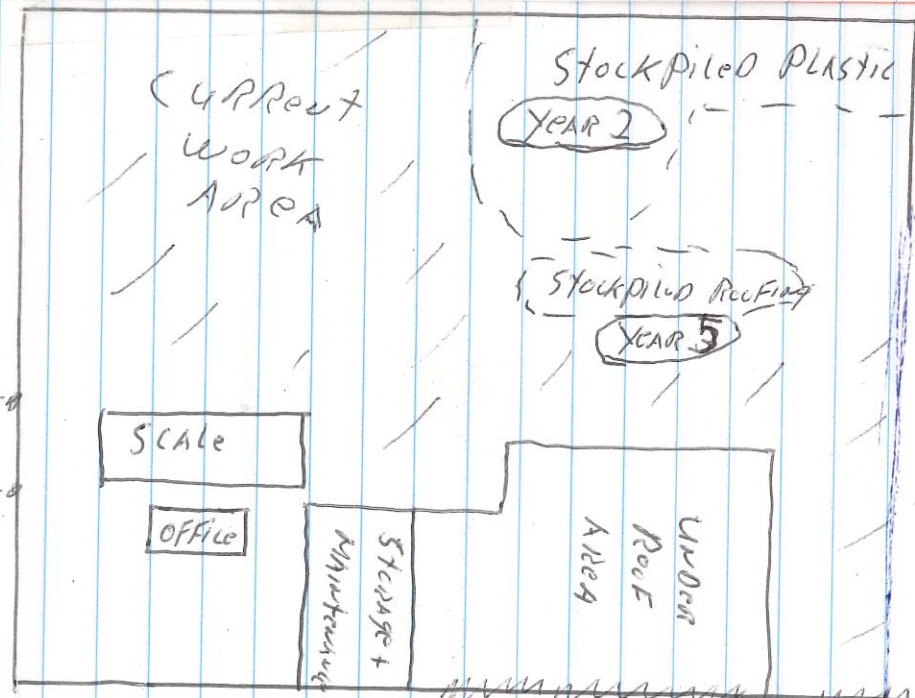 CURRENT
WORK
AREA
STOCKPILED PLASTIC
YEAR 2
STOCKPILED ROOFING
YEAR 5
SCALE
OFFICE
STORAGE +
MAINTENANCE
UNDER
ROOF
AREA